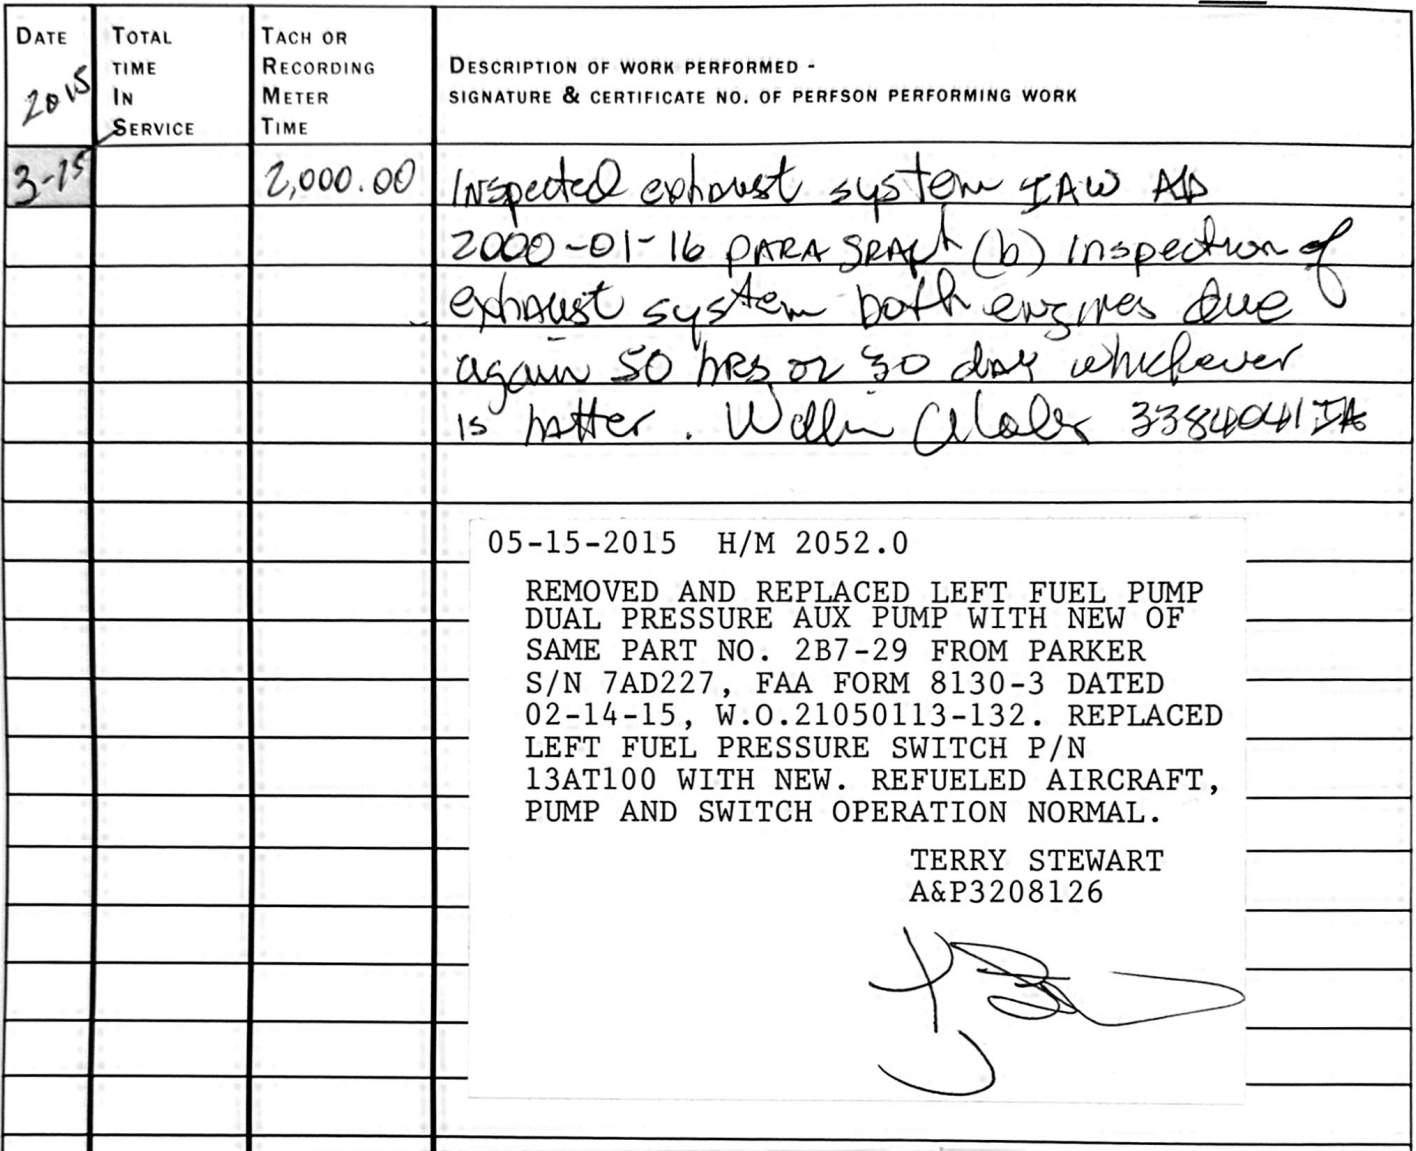 DATE
2015
TOTAL
TIME
IN
SERVICE
TACH OR
RECORDING
METER
TIME
DESCRIPTION OF WORK PERFORMED -
SIGNATURE & CERTIFICATE NO. OF PERFSON PERFORMING WORK
3-15 2,000.00 Inspected exhaust system IAW AD
2000-01-16 PARAGRAPH (b) Inspection of
exhaust system both engines due
again 50 hrs or 30 day whichever
is hatter. 3384041 IA
05-15-2015 H/M 2052.0
REMOVED AND REPLACED LEFT FUEL PUMP
DUAL PRESSURE AUX PUMP WITH NEW OF
SAME PART NO. 2B7-29 FROM PARKER
S/N 7AD227, FAA FORM 8130-3 DATED
02-14-15, W.O.21050113-132. REPLACED
LEFT FUEL PRESSURE SWITCH P/N
13AT100 WITH NEW. REFUELED AIRCRAFT,
PUMP AND SWITCH OPERATION NORMAL.
TERRY STEWART
A&P3208126